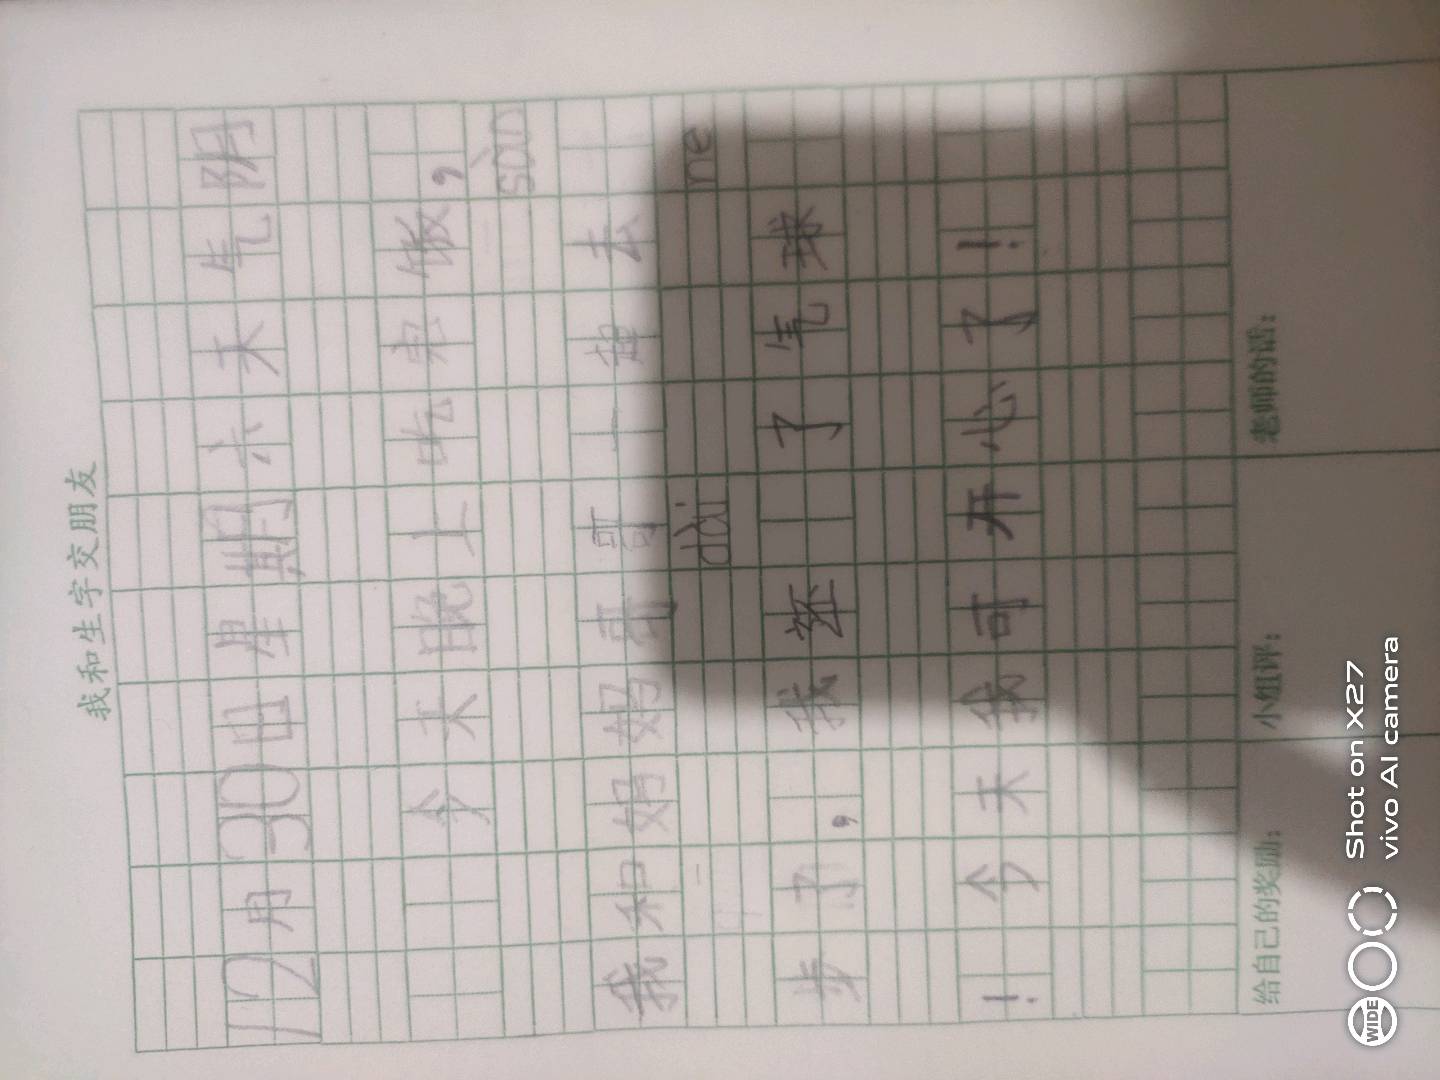 我和生字交朋友
12月30日星期六天气阴
今天晚上吃完饭，
sàn
我和妈妈哥哥一起去
dài ne
步了，我还 了气球
！今天我可开心了！
给自己的奖励： 小组评： 老师的话：
WIDE
Shot on X27
vivo AI camera